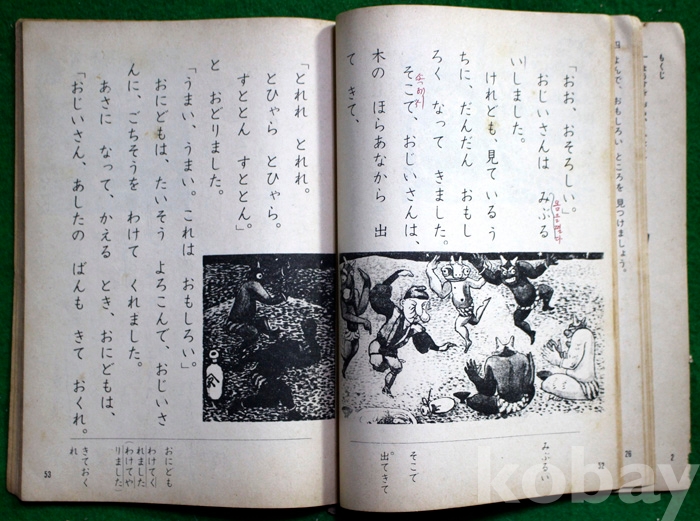 もくじ
よんで、おもしろい ところを 見つけましょう。
2
26
「おお、おそろしい。」
おじいさんは みぶる
いしました。
けれども、見て いる う
ちに、だんだん おもし
ろく なって きました。
そこで、おじいさんは、
木の ほらあなから 出
て きて、
みぶるい
そこで
出てきて
52
「とれれ とれれ。
とひゃら とひゃら。
すととん すととん。」
と おどりました。
「うまい、うまい。これは おもしろい。」
おにどもは、たいそう よろこんで、おじいさ
んに、ごちそうを わけて くれました。
あさに なって、かえる とき、おにどもは、
「おじいさん、あしたの ばんも きて おくれ。
おにども
わけてく
れました
(わけてや
りました)
きておく
れ
53
kobay